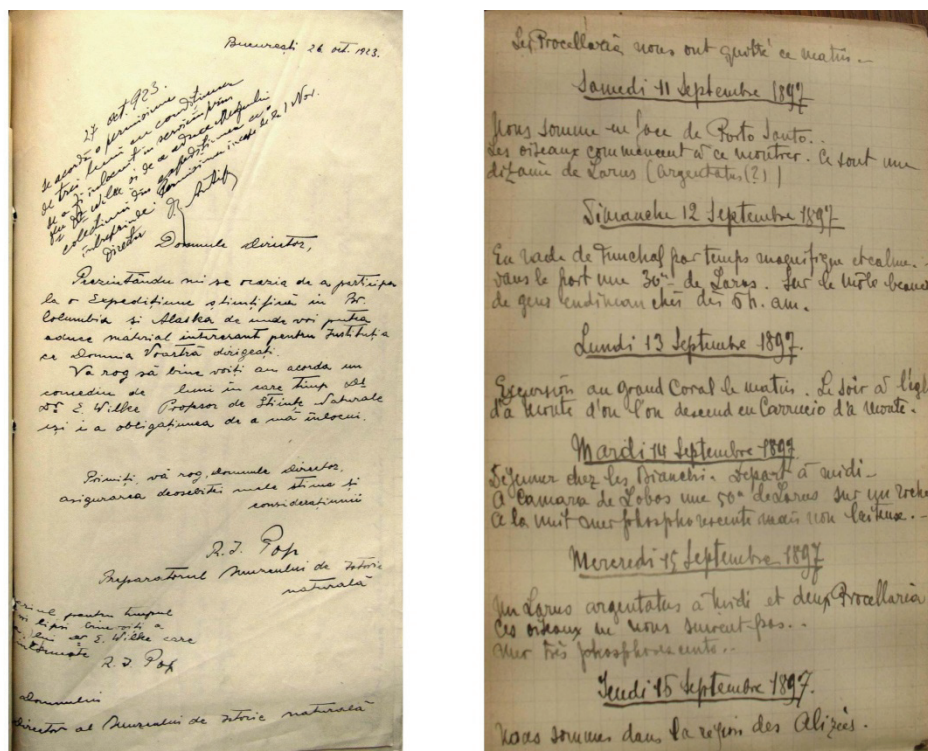 București 26 oct. 1923.
27 oct. 923.
se acordă o permisiune
de trei luni cu condițiunea
de a fi înlocuit în serviciu prin
Dl Dr Wilke și de a aduce Muzeului
colecțiuni din expedițiunea ce
întreprinde. Permisiunea începe de la 1 Nov.
Director
Dr Antipa
Domnule Director,
Prezintându mi se ocazia de a participa
la o Expedițiune științifică în Br.
Columbia și Alaska de unde voi putea
aduce material interesant pentru Instituția
ce Domnia Voastră dirigeați.
Vă rog să bine voiți au acorda un
concediu de luni în care timp Dl
Dr E. Wilke Profesor de Științe Naturale
își i-a obligațiunea de a mă înlocui.
Primiți, vă rog, domnule director,
asigurarea deosebitei mele stime și
considerațiuni
R. I. Pop
Preparatorul Muzeului de Istorie
naturală
pentru timpul
lipsi bine voiți a
dr E. Wilke care
R. I. Pop
Domnului
Director al Muzeului de Istorie naturală
Les Procellaria nous ont quitté ce matin.-
Samedi 11 Septembre 1897
Nous somme en face de Porto Santo..
Les oiseaux commencent à ce montrer. Ce sont une
dizaine de Larus (argentatus(?))
Dimanche 12 Septembre 1897
En rade de Funchal par temps magnifique et calme.-
dans le port une 30ne de Larus. Sur le môle beauc
de gens endimanchés dès 6 h. am.
Lundi 13 Septembre 1897.
Excursion au grand Coral le matin. Le soir à l'égl
d'a monte d'ou l'on descend en Carrucio d'a monte.
Mardi 14 Septembre 1897
Déjeuner chez les Bianchi. Départ à midi-
A Camara de Lobos une 50ne de Larus sur un roche
A la nuit mer phosphorescente mais non laiteux.-
Mercredi 15 Septembre 1897
Un Larus argentatus à midi et deux Procellaria
Ces oiseaux ne nous suivent pas..
Mer très phosphorescente..
Jeudi 15 Septembre 1897.
Nous sommes dans la région des Alizés.